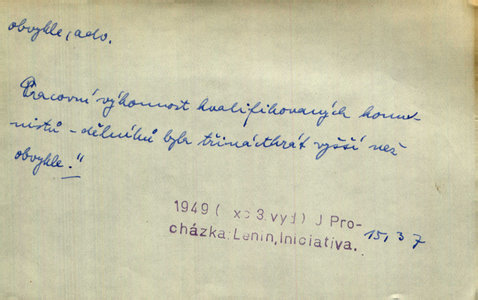 obvykle, ado.
Pracovní výkonnost kvalifikovaných komu-
nistů - dělníků byla třináctkrát vyšší než
obvykle."
1949 ( xc 3.vyd) J Pro-
cházka: Lenin, Iniciativa.
15, 37